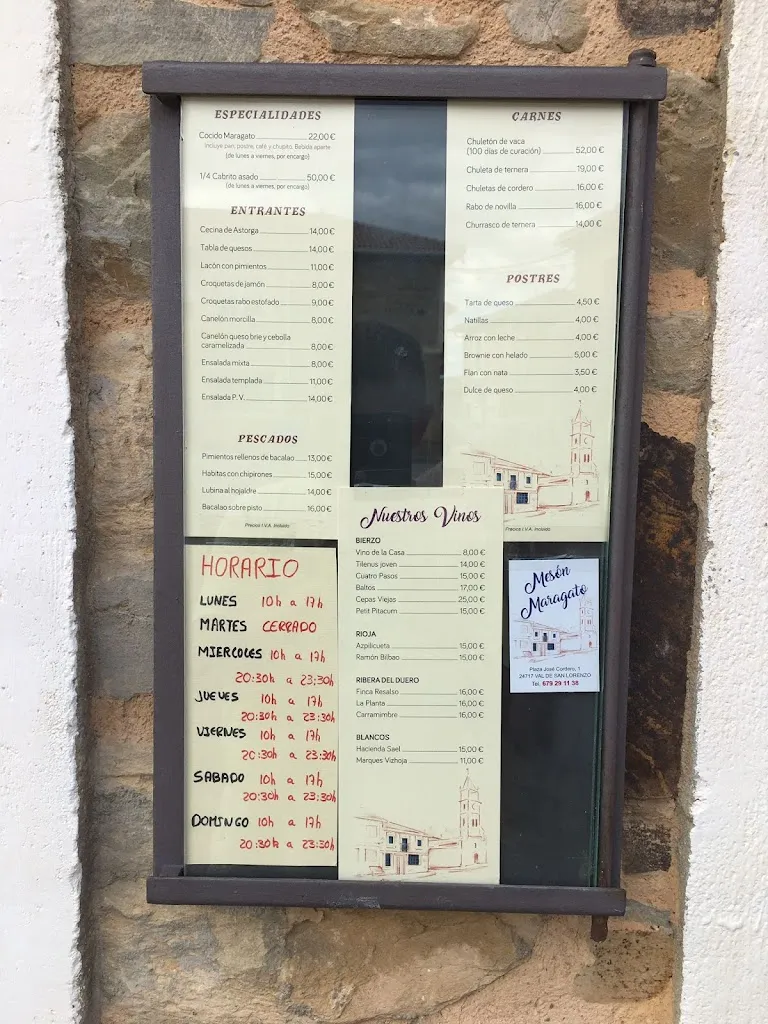 ESPECIALIDADES
Cocido Maragato 22,00 €
Incluye pan, postre, café y chupito. Bebida aparte
(de lunes a viernes, por encargo)
1/4 Cabrito asado 50,00 €
(de lunes a viernes, por encargo)
ENTRANTES
Cecina de Astorga 14,00 €
Tabla de quesos 14,00 €
Lacón con pimientos 11,00 €
Croquetas de jamón 8,00 €
Croquetas rabo estofado 9,00 €
Canelón morcilla 8,00 €
Canelón queso brie y cebolla
caramelizada 8,00 €
Ensalada mixta 8,00 €
Ensalada templada 11,00 €
Ensalada P. V. 14,00 €
PESCADOS
Pimientos rellenos de bacalao 13,00 €
Habitas con chipirones 15,00 €
Lubina al hojaldre 14,00 €
Bacalao sobre pisto 16,00 €
Precios I.V.A. Incluido
CARNES
Chuletón de vaca
(100 días de curación) 52,00 €
Chuleta de ternera 19,00 €
Chuletas de cordero 16,00 €
Rabo de novilla 16,00 €
Churrasco de ternera 14,00 €
POSTRES
Tarta de queso 4,50 €
Natillas 4,00 €
Arroz con leche 4,00 €
Brownie con helado 5,00 €
Flan con nata 3,50 €
Dulce de queso 4,00 €
Precios I.V.A. Incluido
HORARIO
LUNES 10h a 17h
MARTES CERRADO
MIERCOLES 10h a 17h
20:30h a 23:30h
JUEVES 10h a 17h
20:30h a 23:30h
VIERNES 10h a 17h
20:30h a 23:30h
SABADO 10h a 17h
20:30h a 23:30h
DOMINGO 10h a 17h
20:30h a 23:30h
Nuestros Vinos
BIERZO
Vino de la Casa 8,00 €
Tilenus joven 14,00 €
Cuatro Pasos 15,00 €
Baltos 17,00 €
Cepas Viejas 25,00 €
Petit Pitacum 15,00 €
RIOJA
Azpilicueta 15,00 €
Ramón Bilbao 15,00 €
RIBERA DEL DUERO
Finca Resalso 16,00 €
La Planta 16,00 €
Carramimbre 16,00 €
BLANCOS
Hacienda Sael 15,00 €
Marques Vizhoja 11,00 €
Mesón
Maragato
Plaza José Cordero, 1
24717 VAL DE SAN LORENZO
Tel. 679 29 11 38